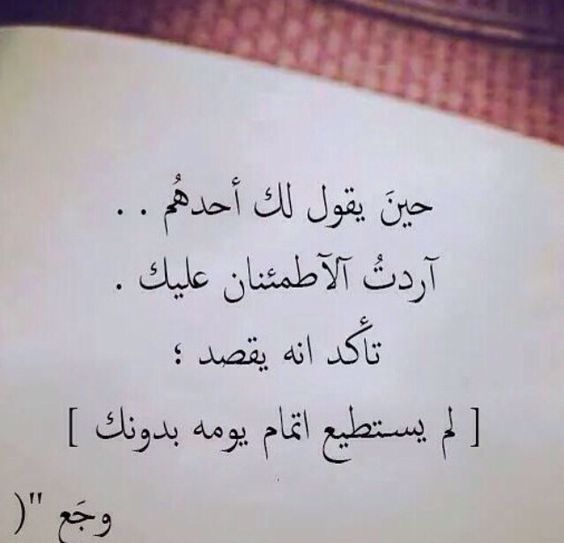 حينَ يقول لك أحدهُم . .
آردتُ آلآطمئنان عليك .
تأكد انه يقصد ؛
[ لم يستطيع اتمام يومه بدونك ]
وجَع "(